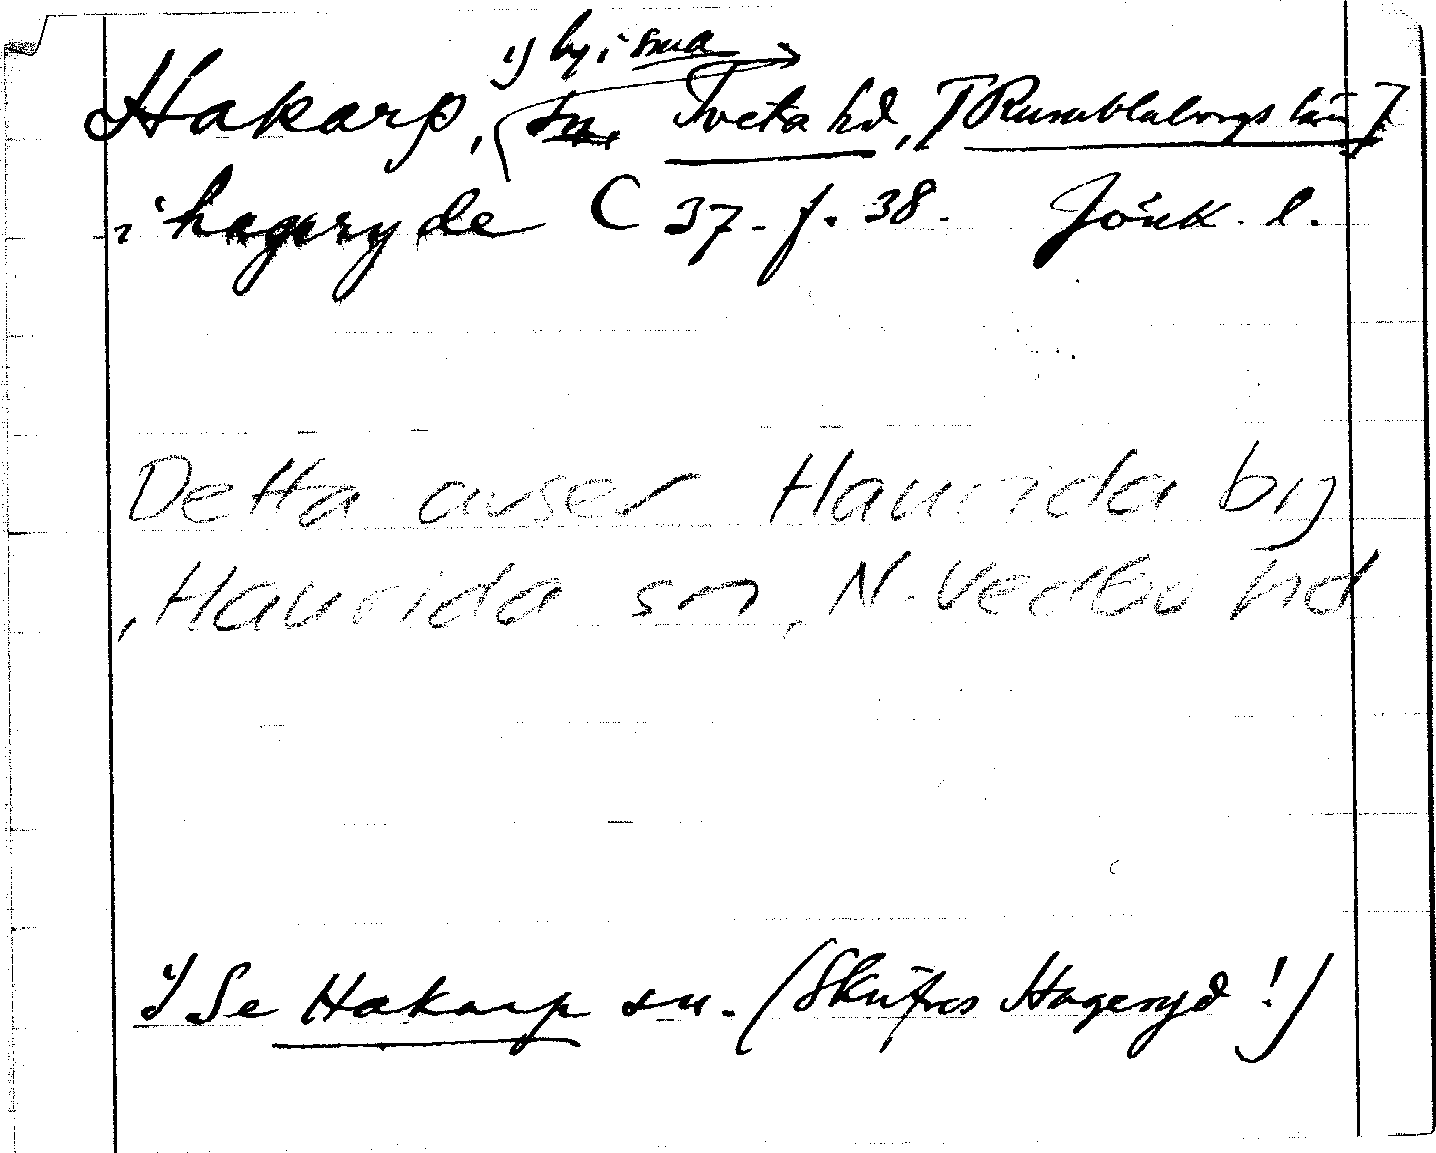 1) by i sma
Hakarp, sn. Tveta hd, [Rumblaborgs län]
i hageryde C 37. f. 38. Jönk. l.
Detta avser Haurida by
, Haurida sn, N. Vedbo hd
1) Se Hakarp sn. (Skrifves Hageryd!)